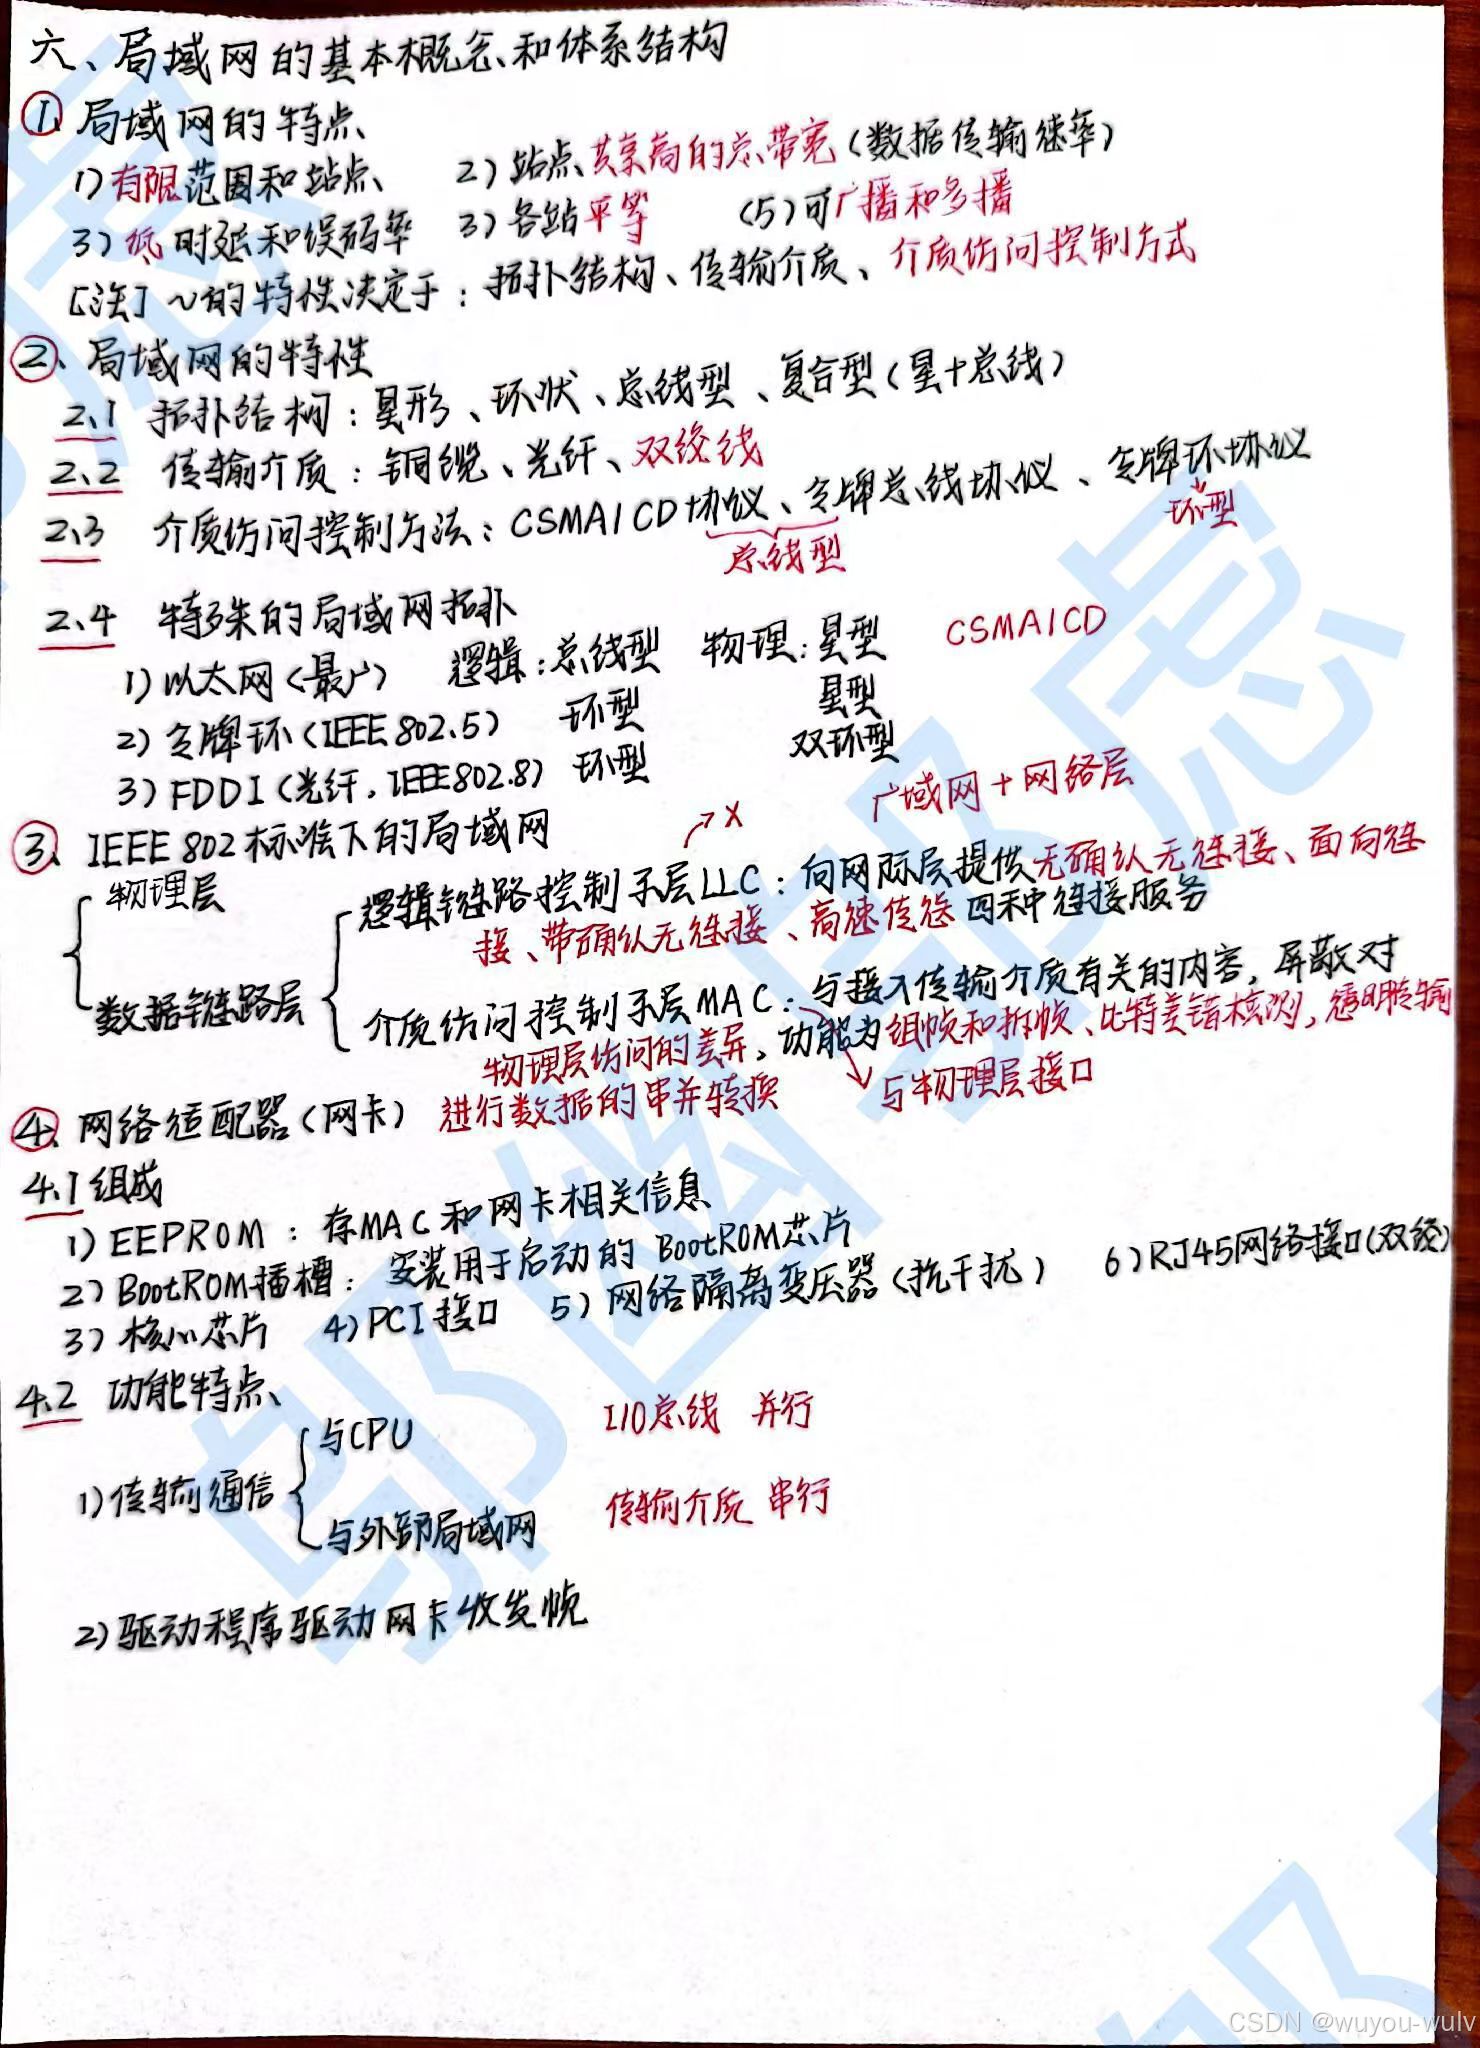 六、局域网的基本概念和体系结构
①、局域网的特点
1)有限范围和站点 2)站点共享高的总带宽(数据传输速率)
3)低时延和误码率 3)各站平等 (5)可广播和多播
[注]~的特性决定于:拓扑结构、传输介质、介质访问控制方式
②、局域网的特性
2.1 拓扑结构:星形、环状、总线型、复合型(星+总线)
2.2 传输介质:铜缆、光纤、双绞线
2.3 介质访问控制方法:CSMA/CD协议、令牌总线协议、令牌环协议
总线型 环型
2.4 特殊的局域网拓扑
1)以太网(最广) 逻辑:总线型 物理:星型 CSMA/CD
2)令牌环(IEEE 802.5) 环型 星型
3)FDDI(光纤,IEEE802.8) 环型 双环型
③、IEEE 802标准下的局域网 →X 广域网+网络层
物理层
逻辑链路控制子层LLC:向网际层提供无确认无连接、面向连
接、带确认无连接、高速传送四种连接服务
数据链路层
介质访问控制子层MAC:与接入传输介质有关的内容,屏蔽对
物理层访问的差异,功能为组帧和拆帧、比特差错检测,透明传输
④、网络适配器(网卡) 进行数据的串并转换 与物理层接口
4.1组成
1)EEPROM:存MAC和网卡相关信息
2)BootROM插槽:安装用于启动的BootROM芯片
3)核心芯片 4)PCI接口 5)网络隔离变压器(抗干扰) 6)RJ45网络接口(双绞)
4.2 功能特点
1)传输通信
与CPU I/O总线 并行
与外部局域网 传输介质 串行
2)驱动程序驱动网卡收发帧
CSDN @wuyou-wulv